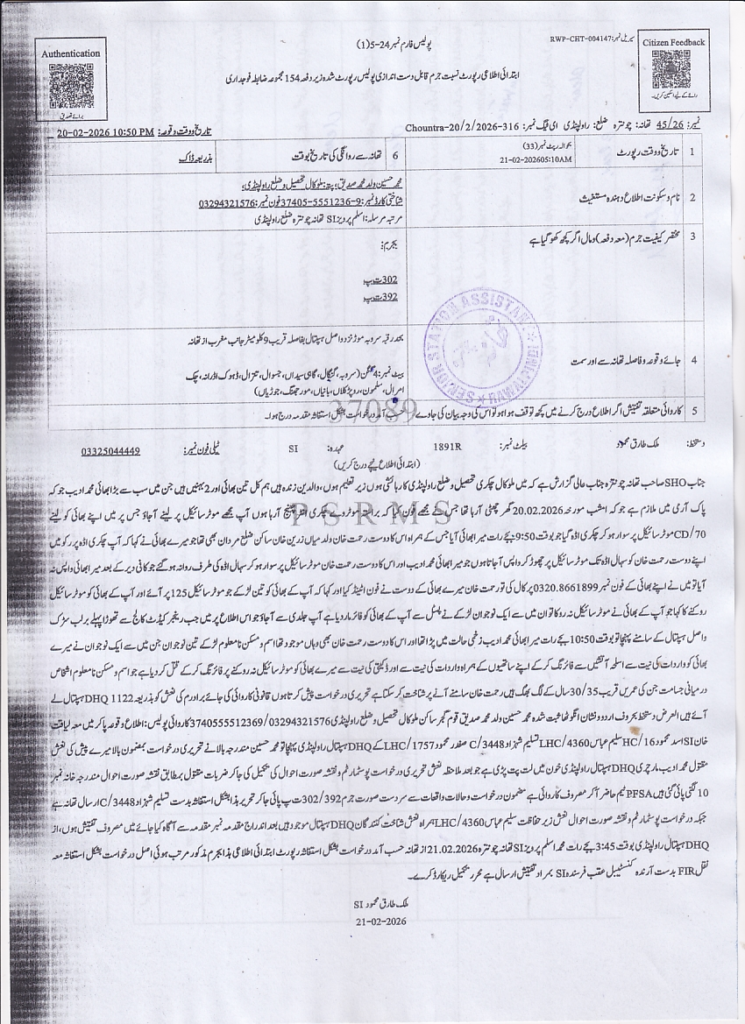 سیریل نمبر:RWP-CHT-004147
پولیس فارم نمبر 24-5(1)
Authentication
Citizen Feedback
ابتدائی اطلاعی رپورٹ نسبت جرم قابل دست اندازی پولیس رپورٹ شدہ زیر دفعہ 154 مجموعہ ضابطہ فوجداری
نمبر: 45/26 تھانہ: چونترہ ضلع: راولپنڈی ای ٹیگ نمبر: Chountra-20/2/2026-316 تاریخ وقت وقوعہ: 20-02-2026 10:50 PM
1 تاریخ ووقت رپورٹ بحوالہ رپٹ نمبر(33) 21-02-202605:10AM 6 تھانہ سے روانگی کی تاریخ بوقت بذریعہ ڈاک
2 نام و سکونت اطلاع دہندہ مستغیث محمد حسنین ولد محمد صدیق، پتہ: ملوکال تحصیل و ضلع راولپنڈی،
شناختی کارڈ نمبر: 37405-5551236-9 فون نمبر: 03294321576
مرتبہ مرسلہ: اسلم پرویز SI تھانہ چونترہ ضلع راولپنڈی
3 مختصر کیفیت جرم (معہ دفعہ) و مال اگر کچھ کھو گیا ہے بجرم:
302ت پ
392ت پ
4 جائے وقوعہ و فاصلہ تھانہ سے اور سمت بحد رقبہ سروبہ موڑ نزد واصل ہسپتال بفاصلہ قریب 9 کلومیٹر جانب مغرب از تھانہ
5 کاروائی متعلقہ تفتیش اگر اطلاع درج کرنے میں کچھ توقف ہوا ہو تو اس کی وجہ بیان کی جاوے حسب آمد درخواست بشکل استغاثہ مقدمہ درج ہوا۔
37089
SENIOR STATION ASSISTANT
دستخط: ملک طارق محمود بیلٹ نمبر: 1891R عہدہ: SI ٹیلی فون نمبر: 03325044449
(ابتدائی اطلاع نیچے درج کریں)
PSRMS
جناب SHO صاحب تھانہ چونترہ جناب عالی گزارش ہے کہ میں ملوکال چکری تحصیل و ضلع راولپنڈی کا رہائشی ہوں زیر تعلیم ہوں، والدین زندہ ہیں ہم کل تین بھائی اور 2 بہنیں ہیں جن میں سب سے بڑا بھائی محمد ادیب جو کہ
پاک آرمی میں ملازم ہے جو کہ امشب مورخہ 20.02.2026 گھر چھٹی آرہا تھا جس نے مجھے فون کیا کہ براستہ موٹروے چکری انٹرچینج آرہا ہوں آپ مجھے موٹر سائیکل پر لینے آجاؤ جس پر میں اپنے بھائی کو لینے
CD/70 موٹر سائیکل پر سوار ہو کر چکری اڈہ گیا جو بوقت 9:50 بجے رات میرا بھائی آیا جس کے ہمراہ اس کا دوست رحمت خان ولد میاں زرین خان ساکن ضلع مردان بھی تھا جو میرے بھائی نے کہا کہ آپ چکری اڈہ پر رکو میں
اپنے دوست رحمت خان کو سہال اڈہ تک موٹر سائیکل پر چھوڑ کر واپس آجاتا ہوں جو میرا بھائی محمد ادیب اور اس کا دوست رحمت خان موٹر سائیکل پر سوار ہو کر سہال اڈہ کی طرف روانہ ہو گئے جو کافی دیر کے بعد میرا بھائی واپس نہ
آیا تو میں نے اپنے بھائی کے فون نمبر 0320.8661899 پر کال کی تو رحمت خان میرے بھائی کے دوست نے فون اٹینڈ کیا اور کہا کہ آپ کے بھائی کو تین لڑکے جو موٹر سائیکل 125 پر آئے اور آپ کے بھائی کو موٹر سائیکل
روکنے کا کہا جو آپ کے بھائی نے موٹر سائیکل نہ روکا تو ان میں سے ایک نوجوان لڑکے نے پسٹل سے آپ کے بھائی کو فائر مار دیا ہے آپ جلدی سے آجاؤ جو اس اطلاع پر میں جب رینجر کیڈٹ کالج سے تھوڑا پہلے برلب سڑک
واصل ہسپتال کے سامنے پہنچا تو بوقت 10:50 بجے رات میرا بھائی محمد ادیب زخمی حالت میں پڑا تھا اور اس کا دوست رحمت خان بھی وہاں موجود تھا اسم و مسکن نامعلوم لڑکے تین نوجوان جن میں سے ایک نوجوان نے میرے
بھائی کو واردات کی نیت سے اسلحہ آتشیں سے فائرنگ کر کے اپنے ساتھیوں کے ہمراہ واردات کی نیت سے اور ڈکیتی کی نیت سے میرے بھائی کو موٹر سائیکل نہ روکنے پر فائرنگ کر کے قتل کر دیا ہے جو اسم و مسکن نامعلوم اشخاص
درمیانی جسامت جن کی عمریں قریب 30/35 سال کے لگ بھگ ہیں رحمت خان سامنے آنے پر شناخت کر سکتا ہے تحریری درخواست پیش کرتا ہوں قانونی کاروائی کی جائے برادرم کی نعش کو بذریعہ 1122 DHQ ہسپتال لے
آئے ہیں العرض دستخط بحروف اردو و نشان انگوٹھا ثبت شدہ محمد حسنین ولد محمد صدیق قوم گجر ساکن ملوکال تحصیل و ضلع راولپنڈی 03294321576/3740555512369 کاروائی پولیس: اطلاع وقوعہ پا کر میں معہ لیاقت
خان SI اسد محمود HC/16 سلیم عباس LHC/4360 تسلیم شہزاد C/3448 صفدر محمود LHC/1757 کے DHQ ہسپتال راولپنڈی پہنچا تو محمد حسنین مندرجہ بالا نے تحریری درخواست بمضمون بالا میرے پیش کی نعش
مقتول محمد ادیب مارچری DHQ ہسپتال راولپنڈی خون میں لت پت پڑی ہے جو بعد ملاحظہ نعش تحریری درخواست پوسٹمارٹم و نقشہ صورت احوال کی تکمیل کی جا کر ضربات مقتول بمطابق نقشہ صورت احوال مندرجہ خانہ نمبر
10 لگنی پائی گئی ہیں PFSA ٹیم حاضر آ کر مصروف کاروائی ہے مضمون درخواست و حالات واقعات سے سردست صورت جرم 302/392 ت پ پائی جا کر تحریر ہذا بشکل استغاثہ بدست تسلیم شہزاد C/3448 ارسال تھانہ ہے
جبکہ درخواست پوسٹمارٹم و نقشہ صورت احوال نعش زیر حفاظت سلیم عباس LHC/4360 ہمراہ نعش شناخت کنندگان DHQ ہسپتال موجود ہیں بعد اندراج مقدمہ نمبر مقدمہ سے آگاہ کیا جائے میں مصروف تفتیش ہوں، از
DHQ ہسپتال راولپنڈی بوقت 3:45 بجے رات محمد اسلم پرویز SI تھانہ چونترہ 21.02.2026 از تھانہ حسب آمد درخواست بشکل استغاثہ رپورٹ ابتدائی اطلاعی ہذا بجرم مذکور مرتب ہوئی اصل درخواست بشکل استغاثہ معہ
نقل FIR بدست آرندہ کنسٹیبل عقب فرستندہ SI بمراد تفتیش ارسال ہے محرر تکمیل ریکارڈ کرے۔
ملک طارق محمود SI
21-02-2026